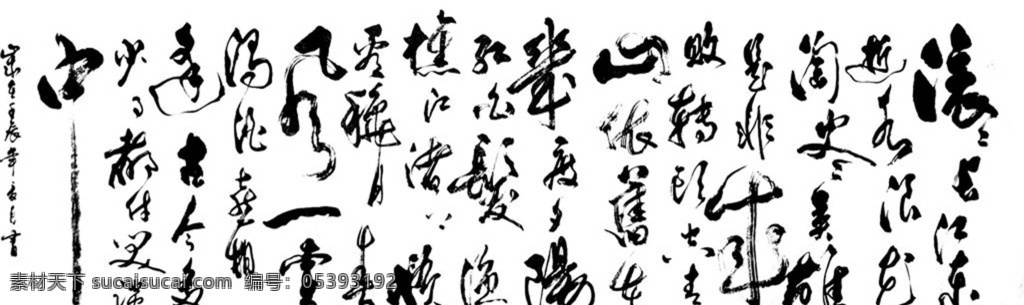 滚滚长江东
逝水浪花
淘尽英雄
是非成
败轉头空青
山依舊在
幾度夕陽
红白髮渔
樵江渚上惯
看秋月春
风一壶
浊酒喜相
逢古今多
少事都付笑谈
中
素材天下 sucaisucai.com 编号：05393192